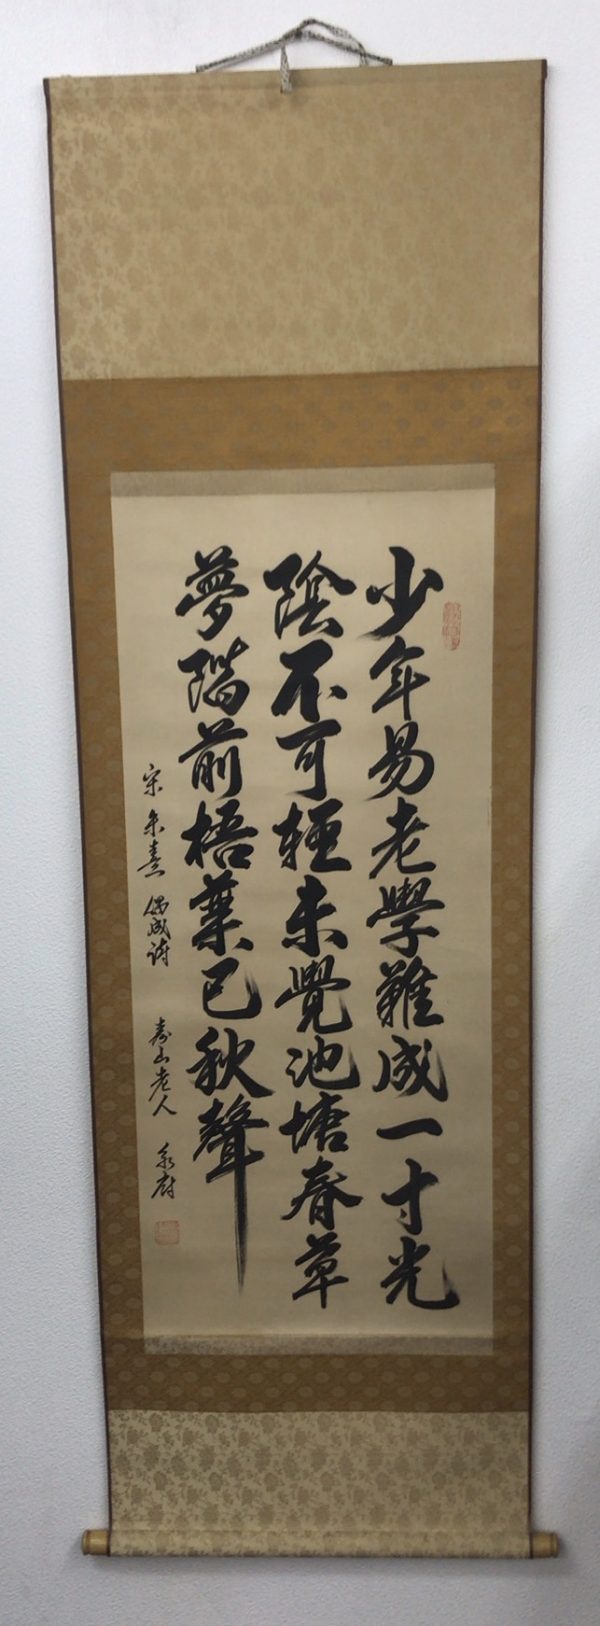 少年易老學難成一寸光
陰不可軽未覺池塘春草
夢階前梧葉已秋聲
宋 朱熹 偶成詩 寿山老人